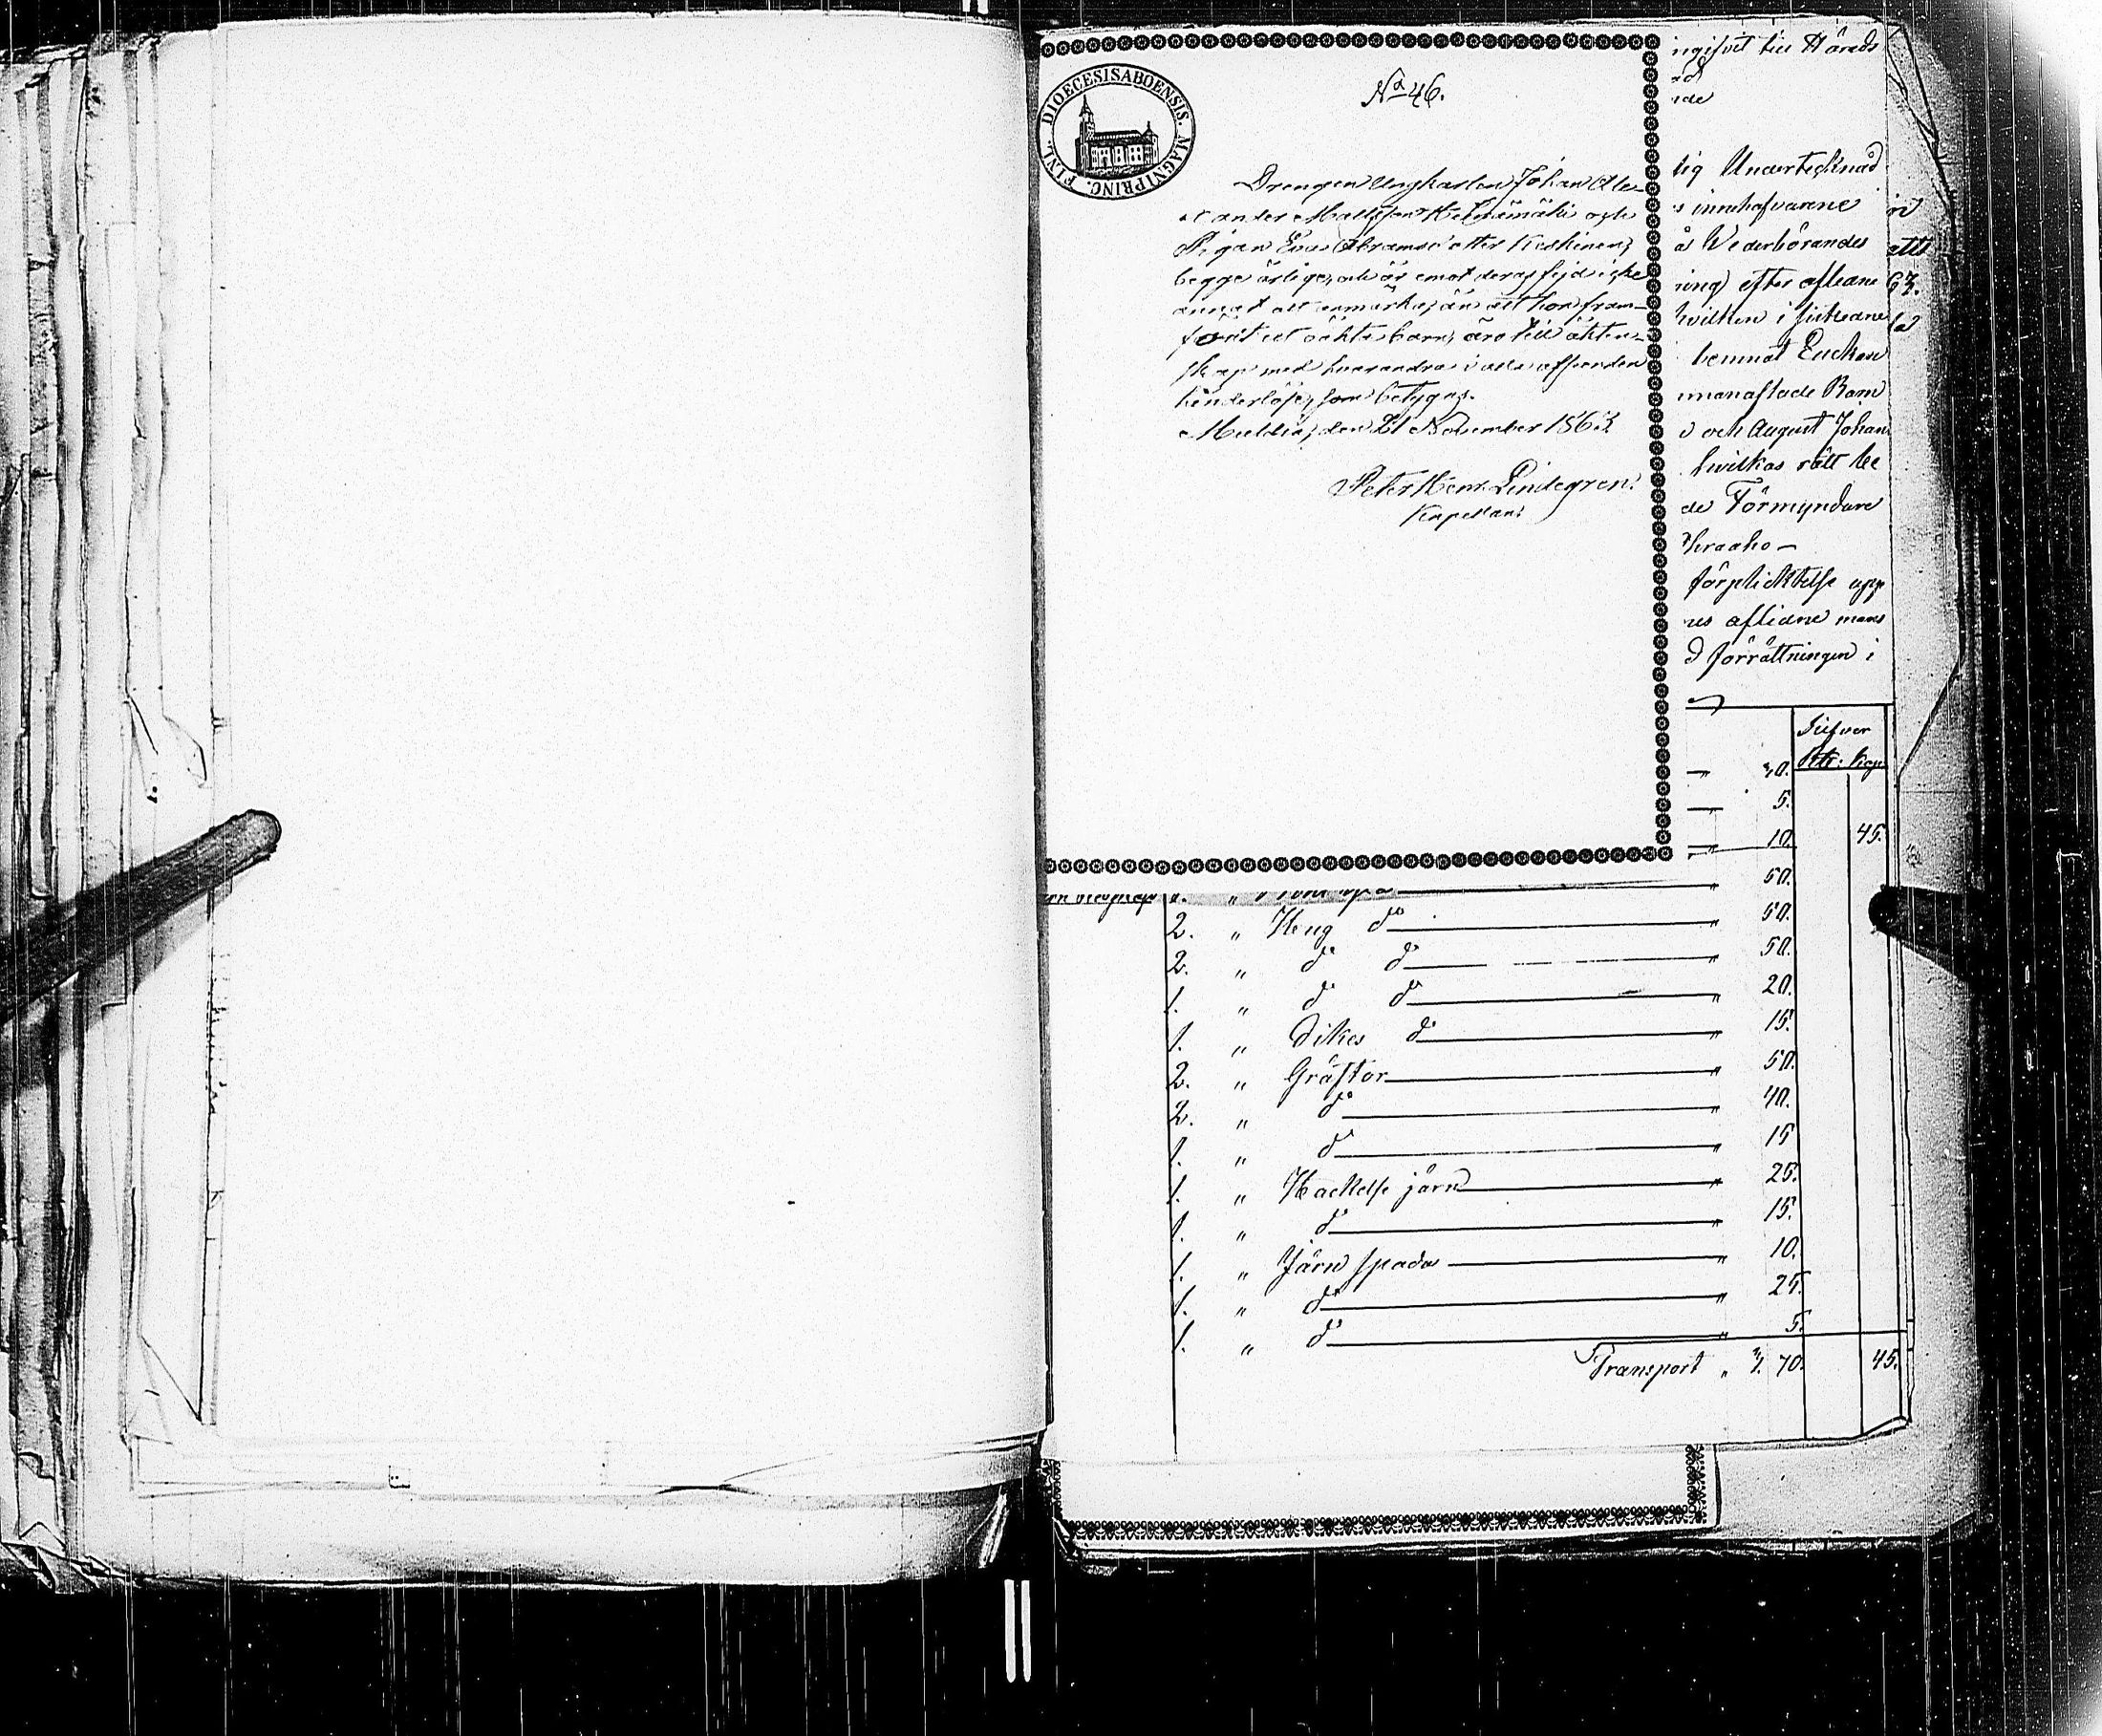 DIOECESIS ABOENSIS. MAGNI PRINC. FINL.
No 46.
Drengen Ungkarlen Johan Ale-
xander Mattsson och
Pigan Eva Abramsdotter Keskinen,
begge ärlige, och är emot deras frejd icke
annat att anmärka, än att hon fram-
födt ett oächta barn, äro till äkten-
skap med hvarandra i alla afseenden
hinderlöse, som betygas.
Multia, den 21 November 1863.
Peter Henr. Lindegren.
Kapellan.
ngifvit till Härads
nde
tig Undertecknad
s innehafvarene
å Wederbörandes
ring efter aflidne
hvilken i
bemnat Enckan
mmanaflade Barn
d och August Johan
hvilkas rätt be
de Förmyndare
förplicktelse upp
nes aflidne mans
d förrättningen i
att
63.
Silfver
Rbl: Kop.
5.
10. 45.
50.
2. " Heug do " 50.
2. " do do " 50.
1. " do do " 20.
1. " Dikes do " 15.
2. " Gräftor " 50.
2. " do " 40.
1. " do " 15
1. " Hackelse järn " 25.
1. " do " 15.
1. " Järn spada " 10.
1. " do " 25.
1. " do " 5.
Transport " 70. 45.